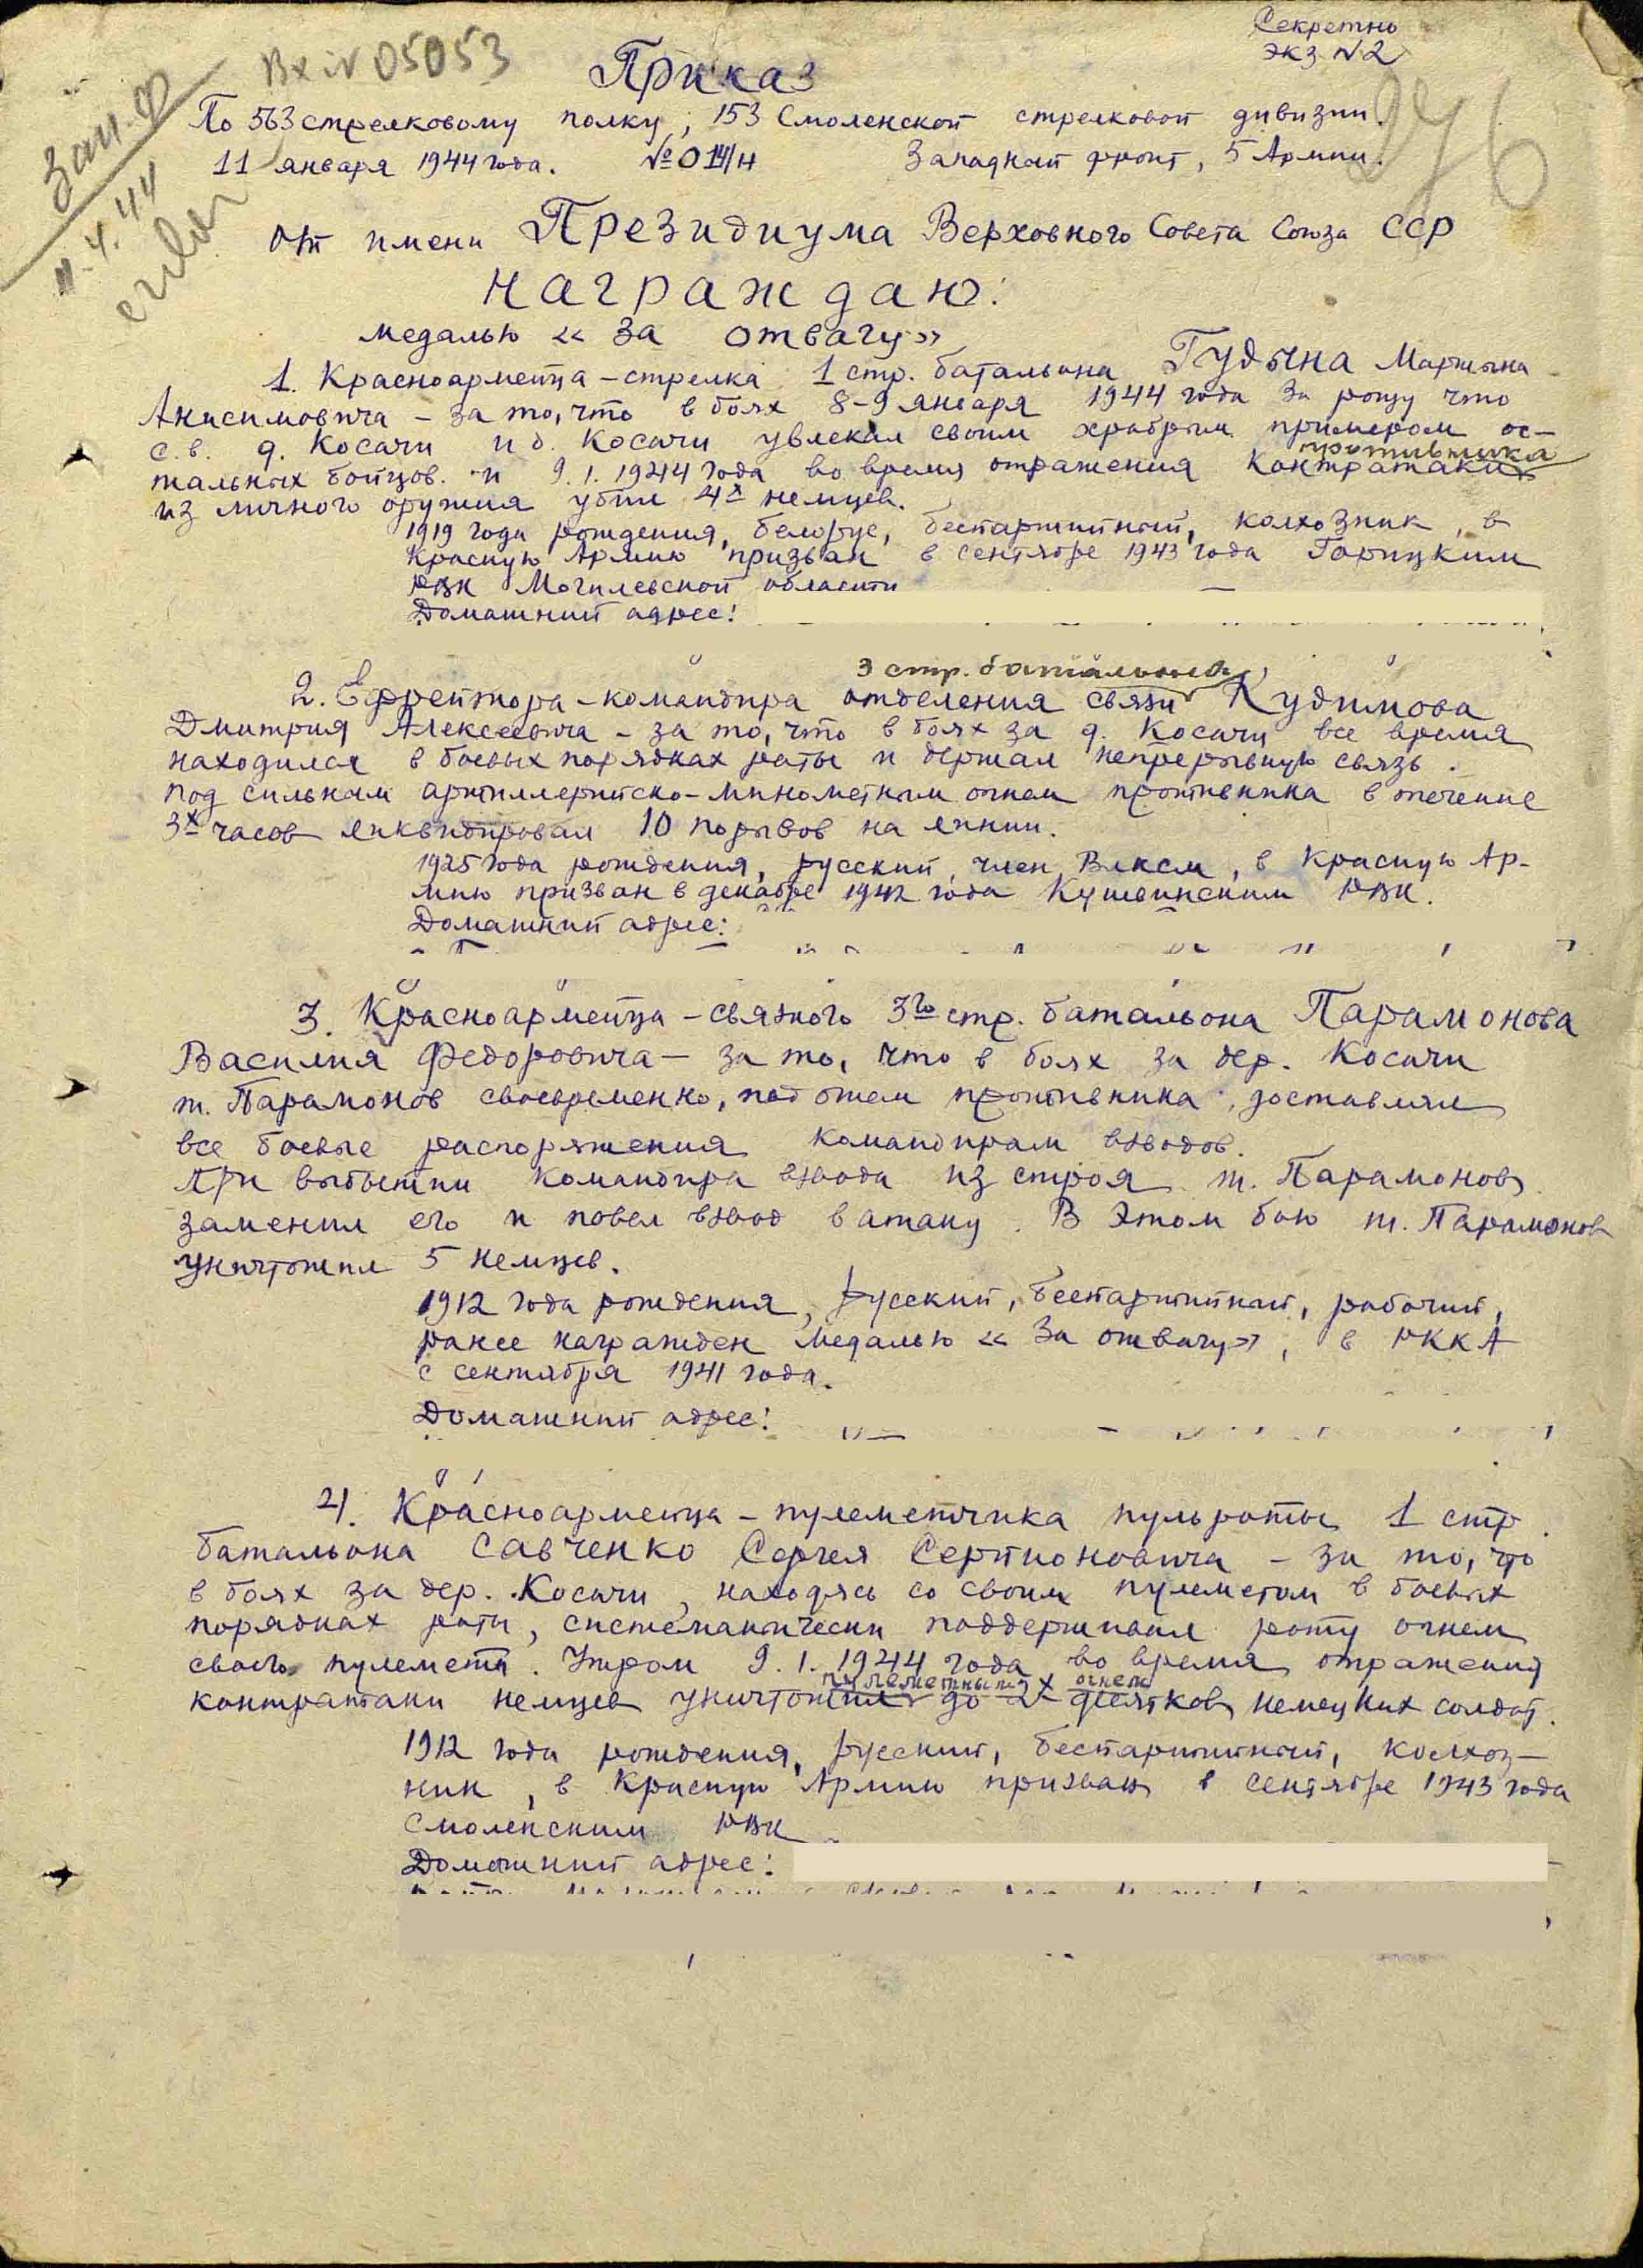 Секретно
экз. №2
Вх №05053
Приказ
По 563 стрелковому полку, 153 Смоленской стрелковой дивизии.
276
11 января 1944 года. №014/н Западный фронт, 5 Армии.
11.4.44
От имени Президиума Верховного Совета Союза ССР
Награждаю:
медалью «За отвагу»
1. Красноармейца-стрелка 1 стр. батальона Гудына Мартына
Анисимовича – за то, что в боях 8-9 января 1944 года за рощу что
с.в. д. Косачи и д. Косачи увлекал своим храбрым примером ос-
противника
тальных бойцов. и 9.1.1944 года во время отражения контратаки
из личного оружия убил 4х немцев.
1919 года рождения, белорус, беспартийный, колхозник, в
Красную Армию призван в сентябре 1943 года Горицким
РВК Могилевской области
Домашний адрес:
3 стр. батальона
2. Ефрейтора-командира отделения связи Кудимова
Дмитрия Алексеевича – за то, что в боях за д. Косачи все время
находился в боевых порядках роты и держал непрерывную связь.
Под сильным артиллерийско-минометным огнем противника в течение
3х часов ликвидировал 10 порывов на линии.
1925 года рождения, русский, член ВЛКСМ, в Красную Ар-
мию призван в декабре 1942 года Кушвинским РВК.
Домашний адрес:
3. Красноармейца-связного 3го стр. батальона Парамонова
Василия Федоровича – за то, что в боях за дер. Косачи
т. Парамонов своевременно, под огнем противника, доставлял
все боевые распоряжения командирам взводов.
При выбытии командира взвода из строя т. Парамонов
заменил его и повел взвод в атаку. В этом бою т. Парамонов
уничтожил 5 немцев.
1912 года рождения, русский, беспартийный, рабочий,
ранее награжден медалью «За отвагу», в РККА
с сентября 1941 года.
Домашний адрес:
4. Красноармейца-пулеметчика пульроты 1 стр.
батальона Савченко Сергея Серпионовича – за то, что
в боях за дер. Косачи, находясь со своим пулеметом в боевых
порядках роты, систематически поддерживал роту огнем
своего пулемета. Утром 9.1.1944 года во время отражения
пулеметным огнем
контратаки немцев уничтожил до 2х десятков немецких солдат.
1912 года рождения, русский, беспартийный, колхоз-
ник, в Красную Армию призван в сентябре 1943 года
Смоленским РВК
Домашний адрес: